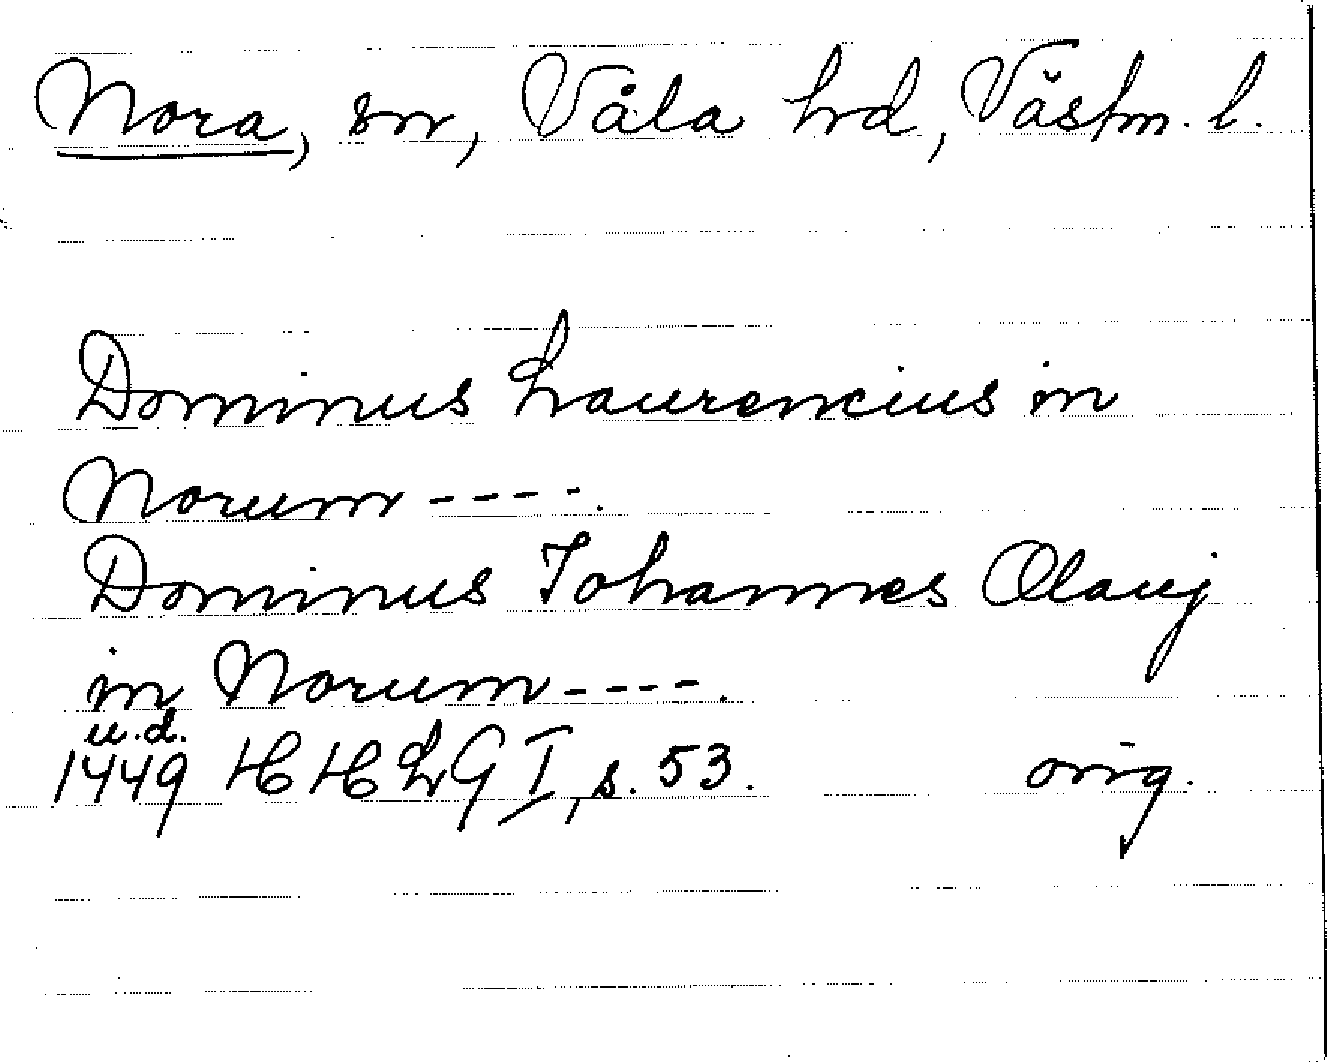 Nora, sn, Våla hd, Västm. l.
Dominus Laurencius in
Norum ----.
Dominus Johannes Olauj
in Norum ----.
u.d.
1449 HHLG I, s. 53. orig.